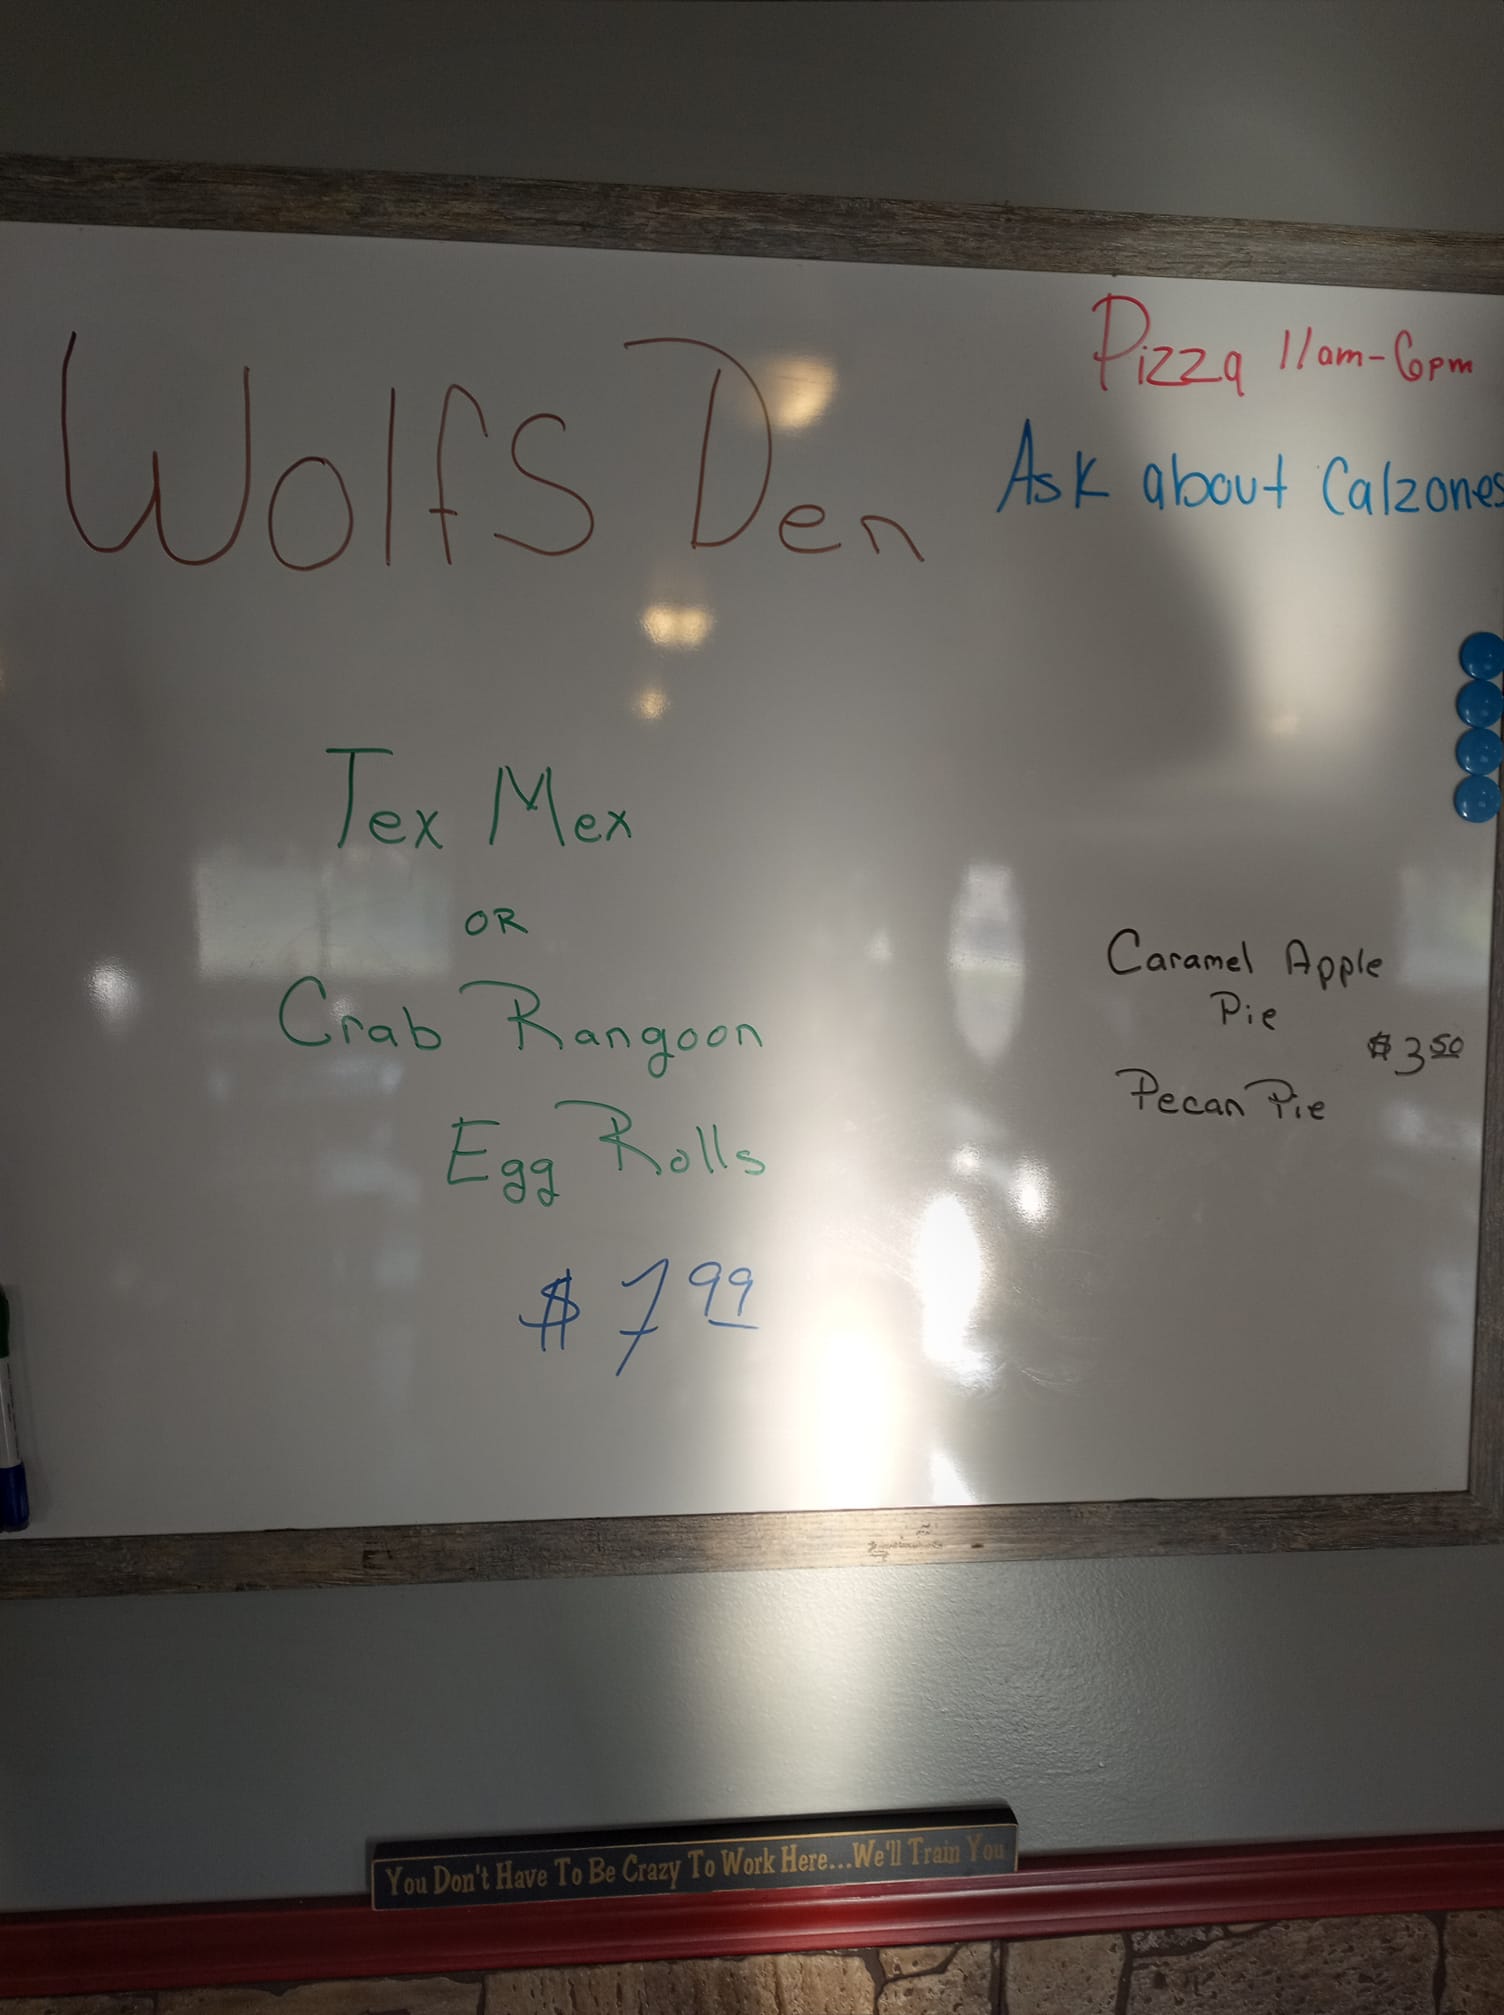 Wolfs Den
Pizza 11am-6pm
Ask about Calzones
Tex Mex
OR
Crab Rangoon
Egg Rolls
$7.99
Caramel Apple
Pie
$3.50
Pecan Pie
You Don't Have To Be Crazy To Work Here...We'll Train You